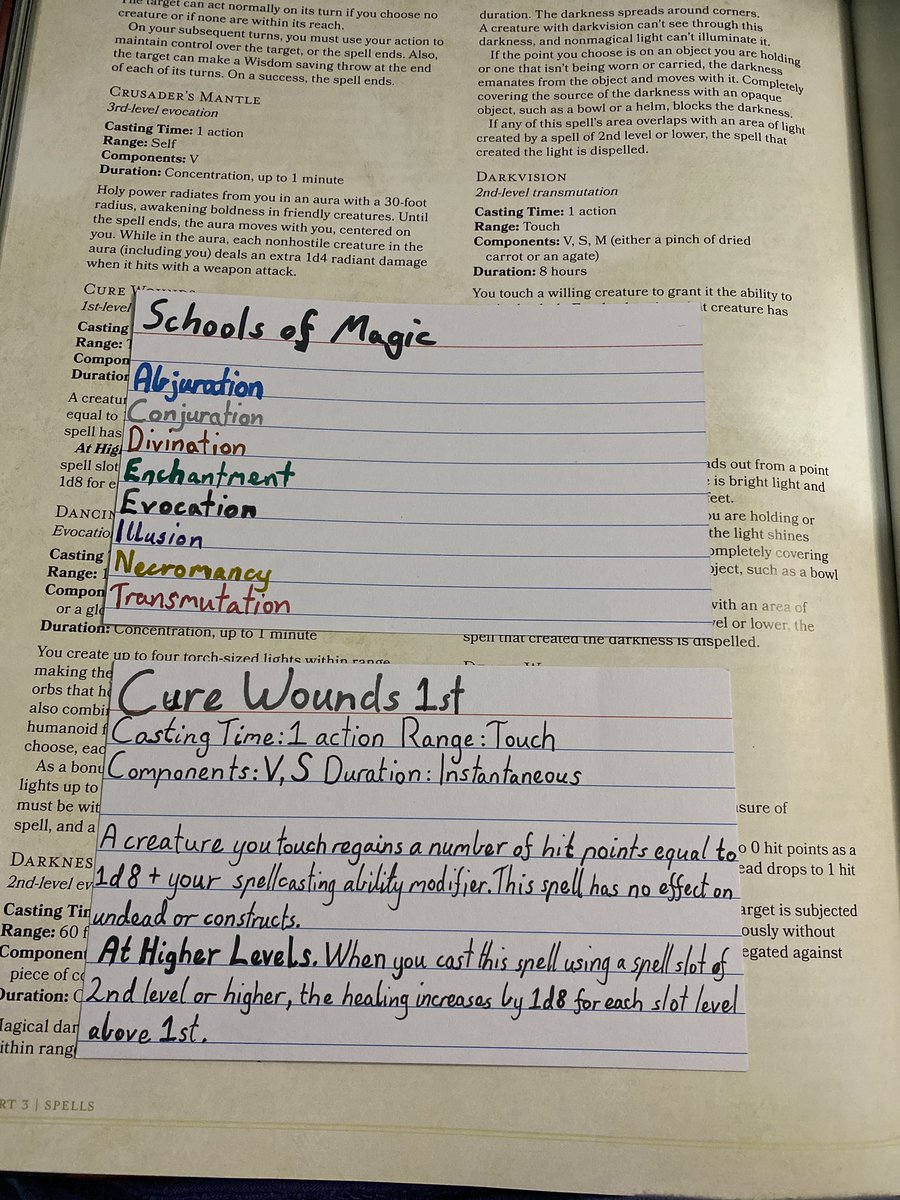 The target can act normally on its turn if you choose no
creature or if none are within its reach.
On your subsequent turns, you must use your action to
maintain control over the target, or the spell ends. Also,
the target can make a Wisdom saving throw at the end
of each of its turns. On a success, the spell ends.
CRUSADER'S MANTLE
3rd-level evocation
Casting Time: 1 action
Range: Self
Components: V
Duration: Concentration, up to 1 minute
Holy power radiates from you in an aura with a 30-foot
radius, awakening boldness in friendly creatures. Until
the spell ends, the aura moves with you, centered on
you. While in the aura, each nonhostile creature in the
aura (including you) deals an extra 1d4 radiant damage
when it hits with a weapon attack.
CURE WOUNDS
1st-level
Casting
Range:
Compon
Duration
A creatur
equal to
spell has
At Hig
spell slot
1d8 for e
DANCIN
Evocatio
Casting
Range: 1
Compon
or a glo
Duration: Concentration, up to 1 minute
You create up to four torch-sized lights within range,
making the
orbs that h
also combi
humanoid f
choose, eac
As a bonu
lights up to
must be wit
spell, and a
DARKNES
2nd-level ev
Casting Tim
Range: 60 f
Component
piece of co
Duration: C
Magical dar
within rang
duration. The darkness spreads around corners.
A creature with darkvision can't see through this
darkness, and nonmagical light can't illuminate it.
If the point you choose is on an object you are holding
or one that isn't being worn or carried, the darkness
emanates from the object and moves with it. Completely
covering the source of the darkness with an opaque
object, such as a bowl or a helm, blocks the darkness.
If any of this spell's area overlaps with an area of light
created by a spell of 2nd level or lower, the spell that
created the light is dispelled.
DARKVISION
2nd-level transmutation
Casting Time: 1 action
Range: Touch
Components: V, S, M (either a pinch of dried
carrot or an agate)
Duration: 8 hours
You touch a willing creature to grant it the ability to
t creature has
ads out from a point
is bright light and
feet.
ou are holding or
the light shines
ompletely covering
bject, such as a bowl
with an area of
vel or lower, the
spell that created the darkness is dispelled.
asure of
o 0 hit points as a
ead drops to 1 hit
arget is subjected
ously without
egated against
Schools of Magic
Abjuration
Conjuration
Divination
Enchantment
Evocation
Illusion
Necromancy
Transmutation
Cure Wounds 1st
Casting Time: 1 action Range: Touch
Components: V, S Duration: Instantaneous
A creature you touch regains a number of hit points equal to
1d8 + your spellcasting ability modifier. This spell has no effect on
undead or constructs.
At Higher Levels. When you cast this spell using a spell slot of
2nd level or higher, the healing increases by 1d8 for each slot level
above 1st.
RT 3 | SPELLS